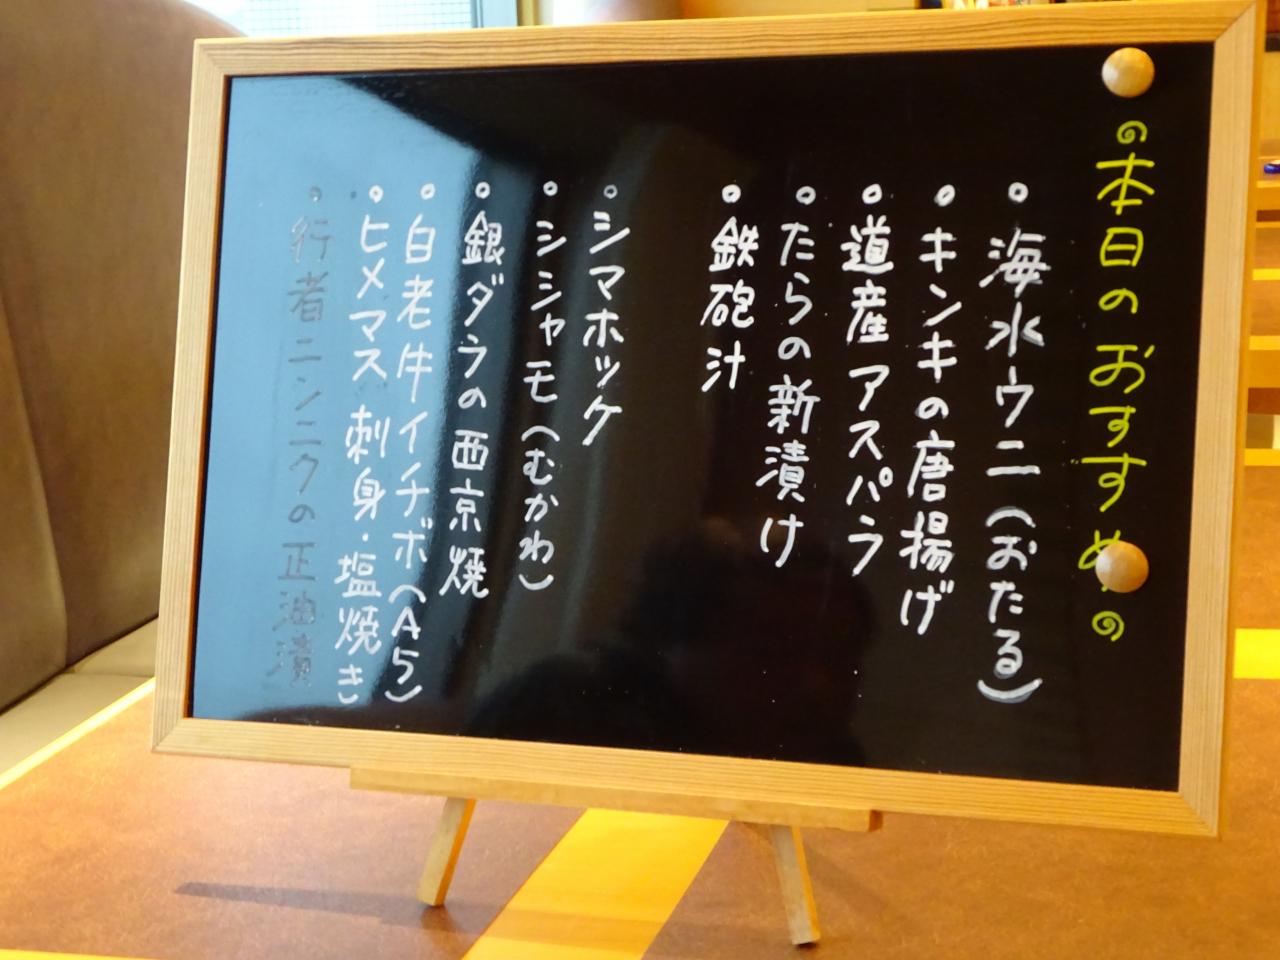 本日のおすすめ
・海水ウニ(おたる)
・キンキの唐揚げ
・道産アスパラ
・たらの新漬け
・鉄砲汁
・シマホッケ
・シシャモ(むかわ)
・銀ダラの西京焼
・白老牛イチボ(A5)
・ヒメマス 刺身・塩焼き
・行者ニンニクの正油漬